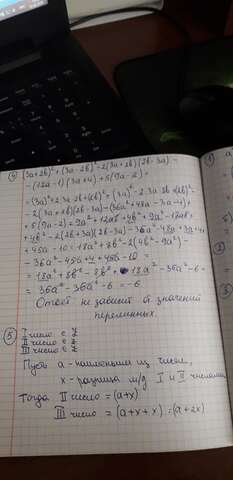 ④ (3a+2b)²+(3a-2b)²-2(3a+2b)(2b-3a)-
-(12a-1)(3a+4)+5(9a-2)=
=(3a)²+2·3a·2b+(2b)²+(3a)²-2·3a·2b+(2b)²-
-2(3a+2b)(2b-3a)-(36a²+48a-3a-4)+
+5(9a-2)=9a²+12ab+4b²+9a²-12ab+
+4b²-2(2b+3a)(2b-3a)-36a²-48a+3a+4+
+45a-10=18a²+8b²-2(4b²-9a²)-
-36a²-45a+4+45a-10=
=18a²+8b²-8b²+18a²-36a²-6=
=36a²-36a²-6=-6
Ответ не зависит от значений
переменных.
⑤ I число
II число
III число
Пусть a - наименьшее из чисел,
x - разница м/д I и II числами
Тогда II число = (a+x)
III число = (a+x+x)=(a+2x)